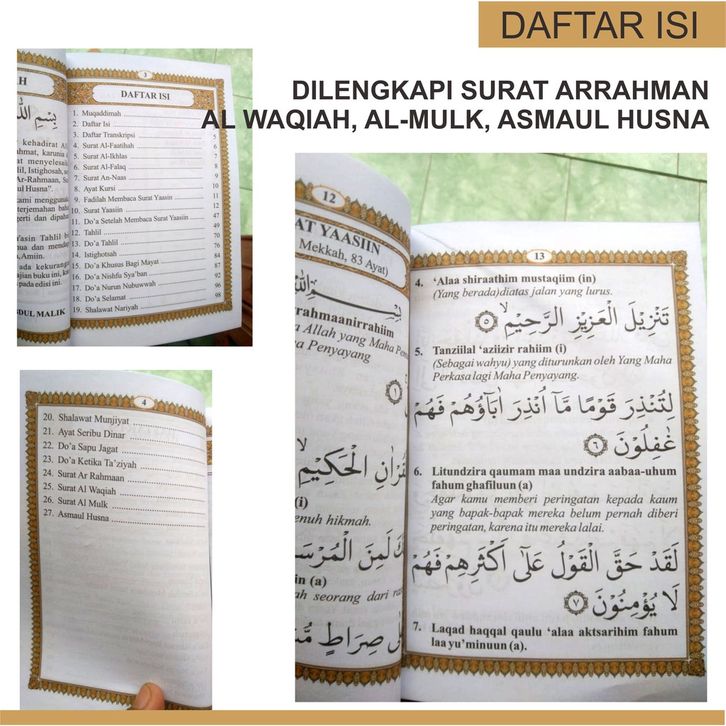 DAFTAR ISI
DILENGKAPI SURAT ARRAHMAN
AL WAQIAH, AL-MULK, ASMAUL HUSNA
3
DAFTAR ISI
1. Muqaddimah
2. Daftar Isi
3. Daftar Transkripsi 5
4. Surat Al-Faatihah 6
5. Surat Al-Ikhlas 7
6. Surat Al-Falaq 8
7. Surat An-Naas 9
8. Ayat Kursi 10
9. Fadilah Membaca Surat Yaasin 11
10. Surat Yaasiin 12
11. Do'a Setelah Membaca Surat Yaasiin 47
12. Tahlil 49
13. Do'a Tahlil 76
14. Istighotsah 84
15. Do'a Khusus Bagi Mayat 87
16. Do'a Nishfu Sya'ban 92
17. Do'a Nurun Nubuwwah 94
18. Do'a Selamat 96
19. Shalawat Nariyah 98
kehadirat
karunia
at menyelesai
lil, Istighosah,
Ar-Rahmaan,
ul Husna".
kami menggunak
terjemahan
gerti dan dipaha
Yasin Tahlil
pua dan mendar
Amiin.
ada kekurangan
ajian buku ini, ka
pada edisi ini.
DUL MALIK
4
20. Shalawat Munjiyat
21. Ayat Seribu Dinar
22. Do'a Sapu Jagat
23. Do'a Ketika Ta'ziyah
24. Surat Ar Rahmaan
25. Surat Al Waqiah
26. Surat Al Mulk
27. Asmaul Husna
12
AT YAASIIN
Mekkah, 83 Ayat)
rahmaanirrahiim
a Allah yang Maha Pem
Maha Penyayang
الْحَكِيْمِ
(i)
enuh hikmah.
لَمِنَ الْمُرْسَ
in (a)
ah seorang dari ra
صِرَاطٍ
13
4. 'Alaa shiraathim mustaqiim (in)
(Yang berada)diatas jalan yang lurus.
تَنْزِيْلَ الْعَزِيْزِ الرَّحِيْمِۙ ٥
5. Tanziilal 'aziizir rahiim (i)
(Sebagai wahyu) yang diturunkan oleh Yang Maha
Perkasa lagi Maha Penyayang.
لِتُنْذِرَ قَوْمًا مَّآ اُنْذِرَ اٰبَاۤؤُهُمْ فَهُمْ
غٰفِلُوْنَ ٦
6. Litundzira qaumam maa undzira aabaa-uhum
fahum ghafiluun (a)
Agar kamu memberi peringatan kepada kaum
yang bapak-bapak mereka belum pernah diberi
peringatan, karena itu mereka lalai.
لَقَدْ حَقَّ الْقَوْلُ عَلٰٓى اَكْثَرِهِمْ فَهُمْ
لَا يُؤْمِنُوْنَ ٧
7. Laqad haqqal qaulu 'alaa aktsarihim fahum
laa yu'minuun (a).